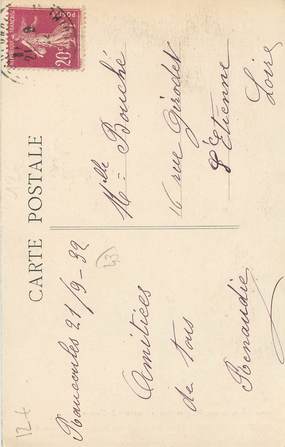 CARTE POSTALE
POSTES
20c
Mlle Bouché
16 rue Girodet
St Etienne
Loire
21/9-32
Amitiées
de tous
Renaudie
43
12 €